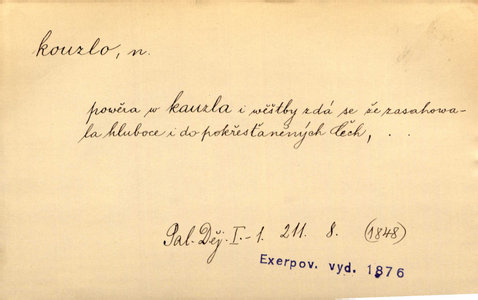 kouzlo, n.
powěra w kauzla i wěštby zdá se že zasahowa-
la hluboce i do pokřesťaněných Čech, . .
Pal. Děj. I.-1. 211. 8. (1848)
Exerpov. vyd. 1876